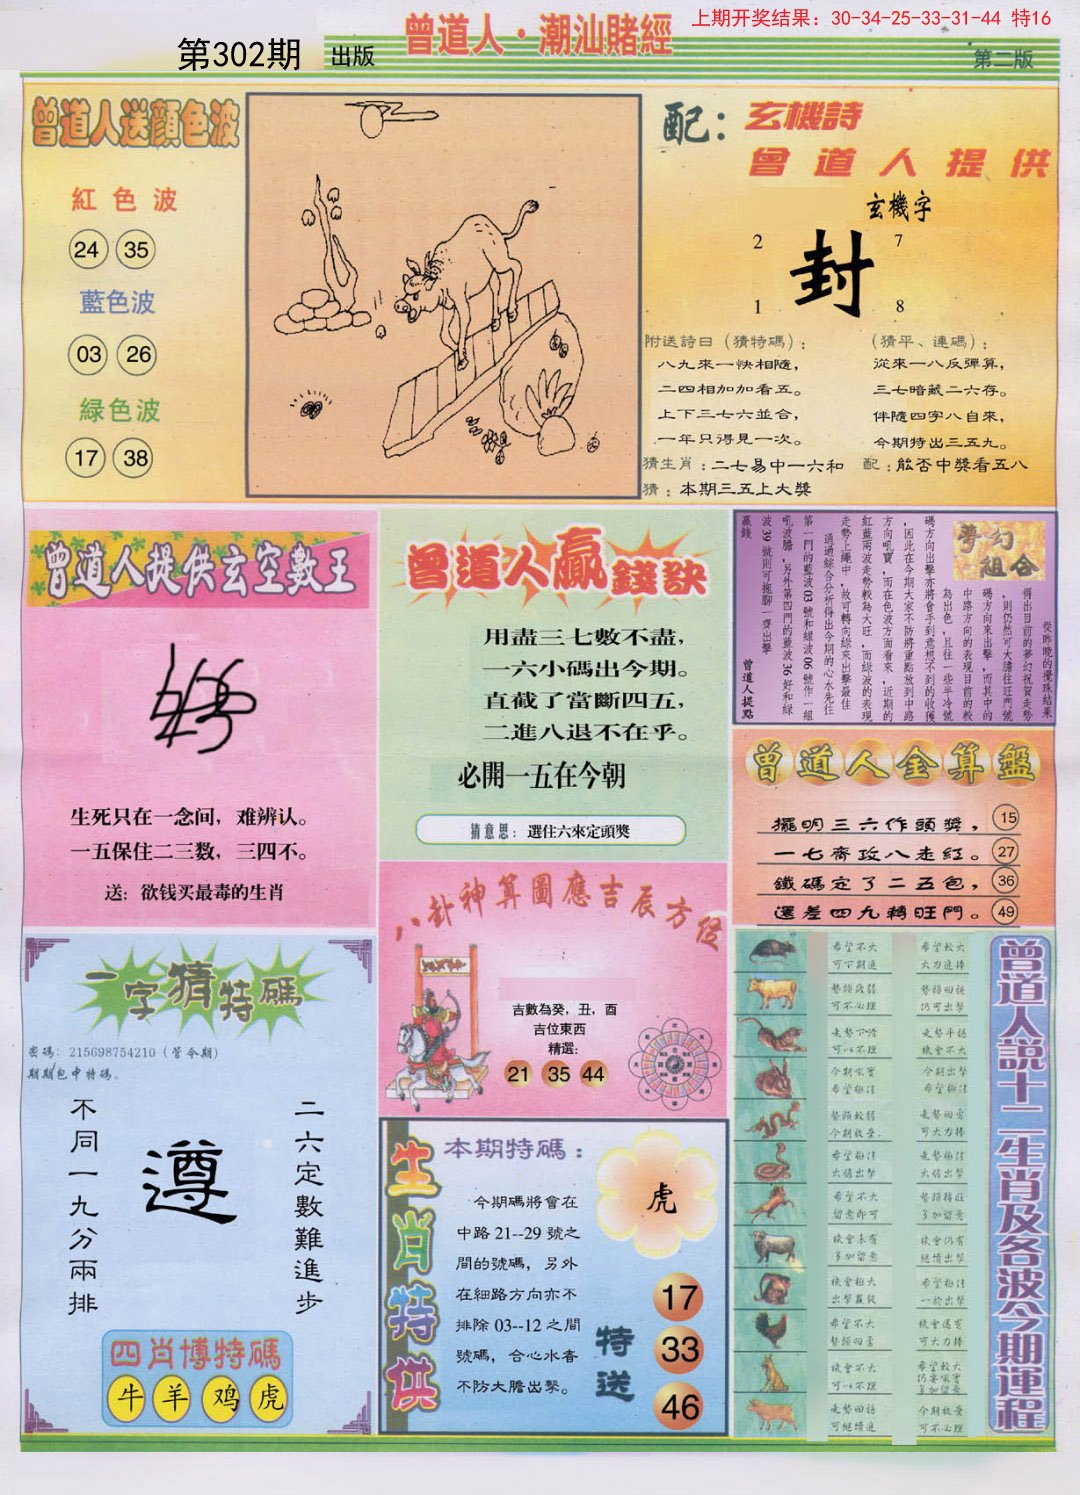 上期开奖结果：30-34-25-33-31-44 特16
第302期 出版
曾道人·潮汕賭經
第二版
曾道人送顏色波
紅色波
24 35
藍色波
03 26
緑色波
17 38
配：玄機詩
曾道人提供
玄機字
2 7
封
1 8
附送詩曰（猜特碼）：
八九來一快相隨，
二四相加加看五。
上下三七六並合，
一年只得見一次。
（猜平、連碼）：
從來一八反彈算，
三七暗藏二六存。
伴隨四字八自來，
今期特出三五九。
猜生肖：二七易中一六和
配：能否中獎看五八
猜：本期三五上大獎
曾道人提供玄空數王
生死只在一念间，难辨认。
一五保住二三数，三四不。
送：欲钱买最毒的生肖
曾道人贏錢訣
用盡三七數不盡，
一六小碼出今期。
直截了當斷四五，
二進八退不在乎。
必開一五在今朝
猜意思：選住六來定頭獎
夢幻組合
從昨晚的攪珠結果
得出目前的夢幻祝賀走勢
，則仍然可大膽往旺門號
碼方向來出擊，而其中的
中路方向的表現目前的較
為出色，且往一些半冷號
碼方向出擊亦將會手到意想不到的收獲
，因此在今期大家不防將重點放到中路
方向吼寶，而在色波方面看來，近期的
紅藍兩波走勢較為大旺，而綠波的表現
走勢上繩中，故可轉向綠來出擊最佳
通過綜合分析得出今期的心水先往
第一門的藍波03號和綠波06號作一組
吼波膽，另外第四門的藍波36好和綠
波39號則可拖腳一齊出擊
贏錢
曾道人提點
曾道人金算盤
擺明三六作頭獎， 15
一七齊攻八走紅。 27
鐵碼定了二五包， 36
還差四九轉旺門。 49
八卦神算圖應吉辰方位
吉數為癸，丑，酉
吉位東西
精選：
21 35 44
一字猜特碼
密碼：215698754210（管今期）
期期包中特碼。
二六定數難進步
遵
不同一九分兩排
四肖博特碼
牛 羊 鸡 虎
生肖特供
本期特碼：
今期碼將會在
中路21--29號之
間的號碼，另外
在細路方向亦不
排除03--12之間
號碼，合心水者
不防大膽出擊。
虎
特送
17
33
46
曾道人說十二生肖及各波今期運程
希望不大
可下期進
希望較大
大力追捧
勢頭疲弱
可不必理
勢頭回揚
仍可出擊
走勢下滑
可以不理
走勢平穩
機會不大
今期吼寶
希望極佳
今期出擊
希望極佳
勢頭較弱
今期放棄
走勢回勇
可大力捧
希望極佳
大膽出擊
走勢極佳
大膽出擊
希望不大
留意即可
勢頭轉旺
多加留意
機會未有
多加留意
機會仍有
繼續出擊
機會極大
出擊贏錢
希望極佳
一於出擊
希望不大
勢頭回落
機會還有
可大力捧
機會不大
可以不理
希望較大
仍要吼寶
多加留意
走勢回穩
可繼續進
今期放棄
可不必理